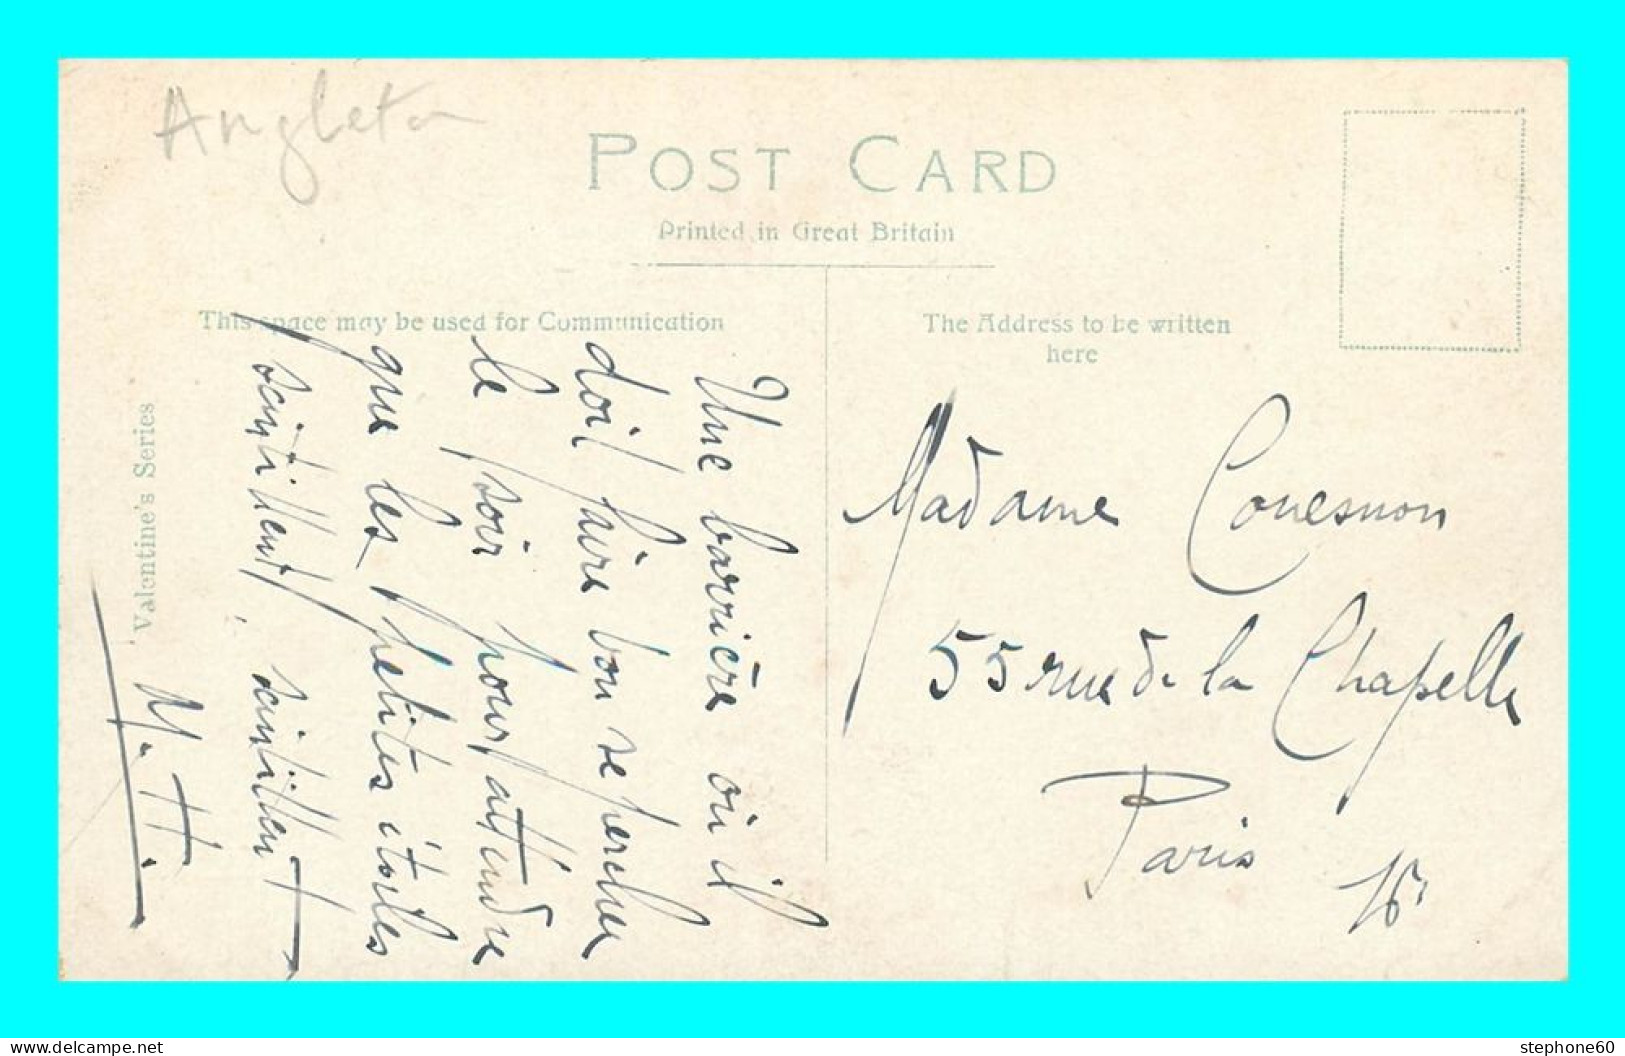 Angleta
POST CARD
Printed in Great Britain
This space may be used for Communication
The Address to be written
here
Valentine's Series
Une barrière où il
doit faire bon se percher
le soir pour attendre
que les petites étoiles
scintillent, scintillent
M. H.
Madame Couesnon
55 rue de la Chapelle
Paris
stephone60